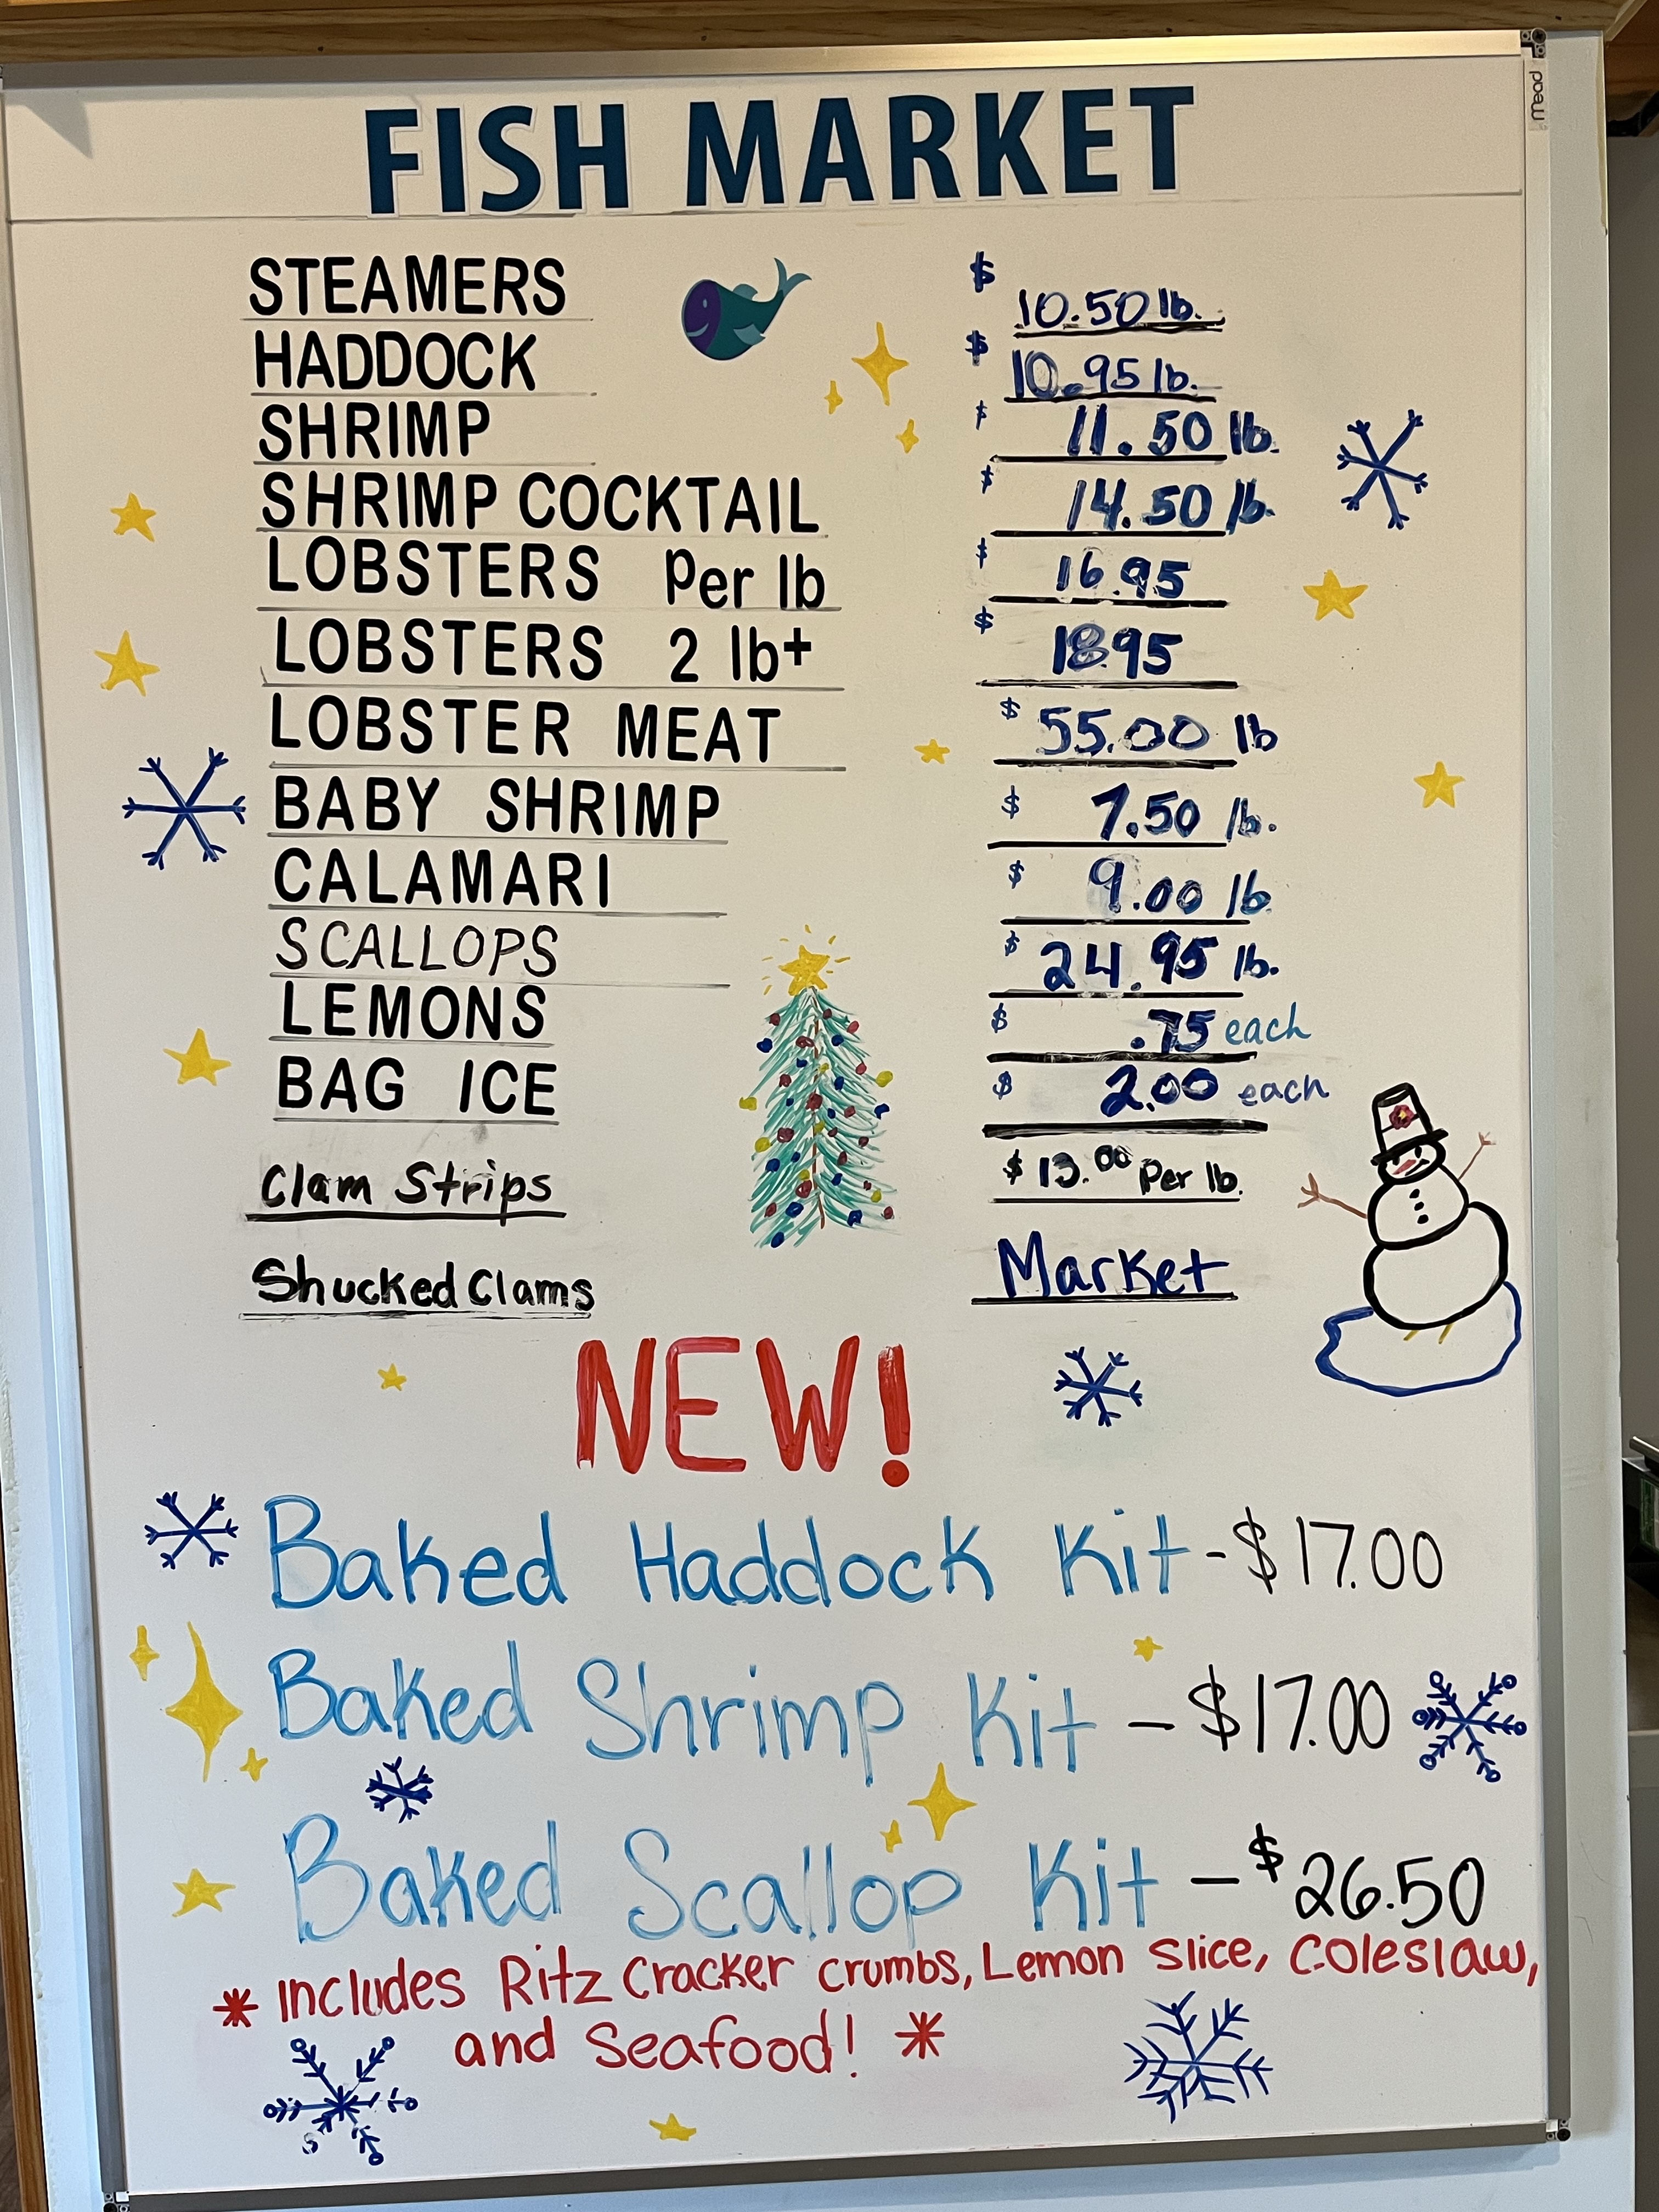 mead
FISH MARKET
STEAMERS $ 10.50 lb.
HADDOCK $ 10.95 lb.
SHRIMP $ 11.50 lb.
SHRIMP COCKTAIL $ 14.50 lb.
LOBSTERS Per lb $ 16.95
LOBSTERS 2 lb+ $ 18.95
LOBSTER MEAT $ 55.00 lb
BABY SHRIMP $ 7.50 lb.
CALAMARI $ 9.00 lb.
SCALLOPS $ 24.95 lb.
LEMONS $ .75 each
BAG ICE $ 2.00 each
Clam Strips $ 13.00 Per lb.
Shucked Clams Market
NEW!
Baked Haddock Kit - $17.00
Baked Shrimp Kit - $17.00
Baked Scallop Kit - $26.50
* Includes Ritz Cracker crumbs, Lemon slice, Coleslaw,
and Seafood! *